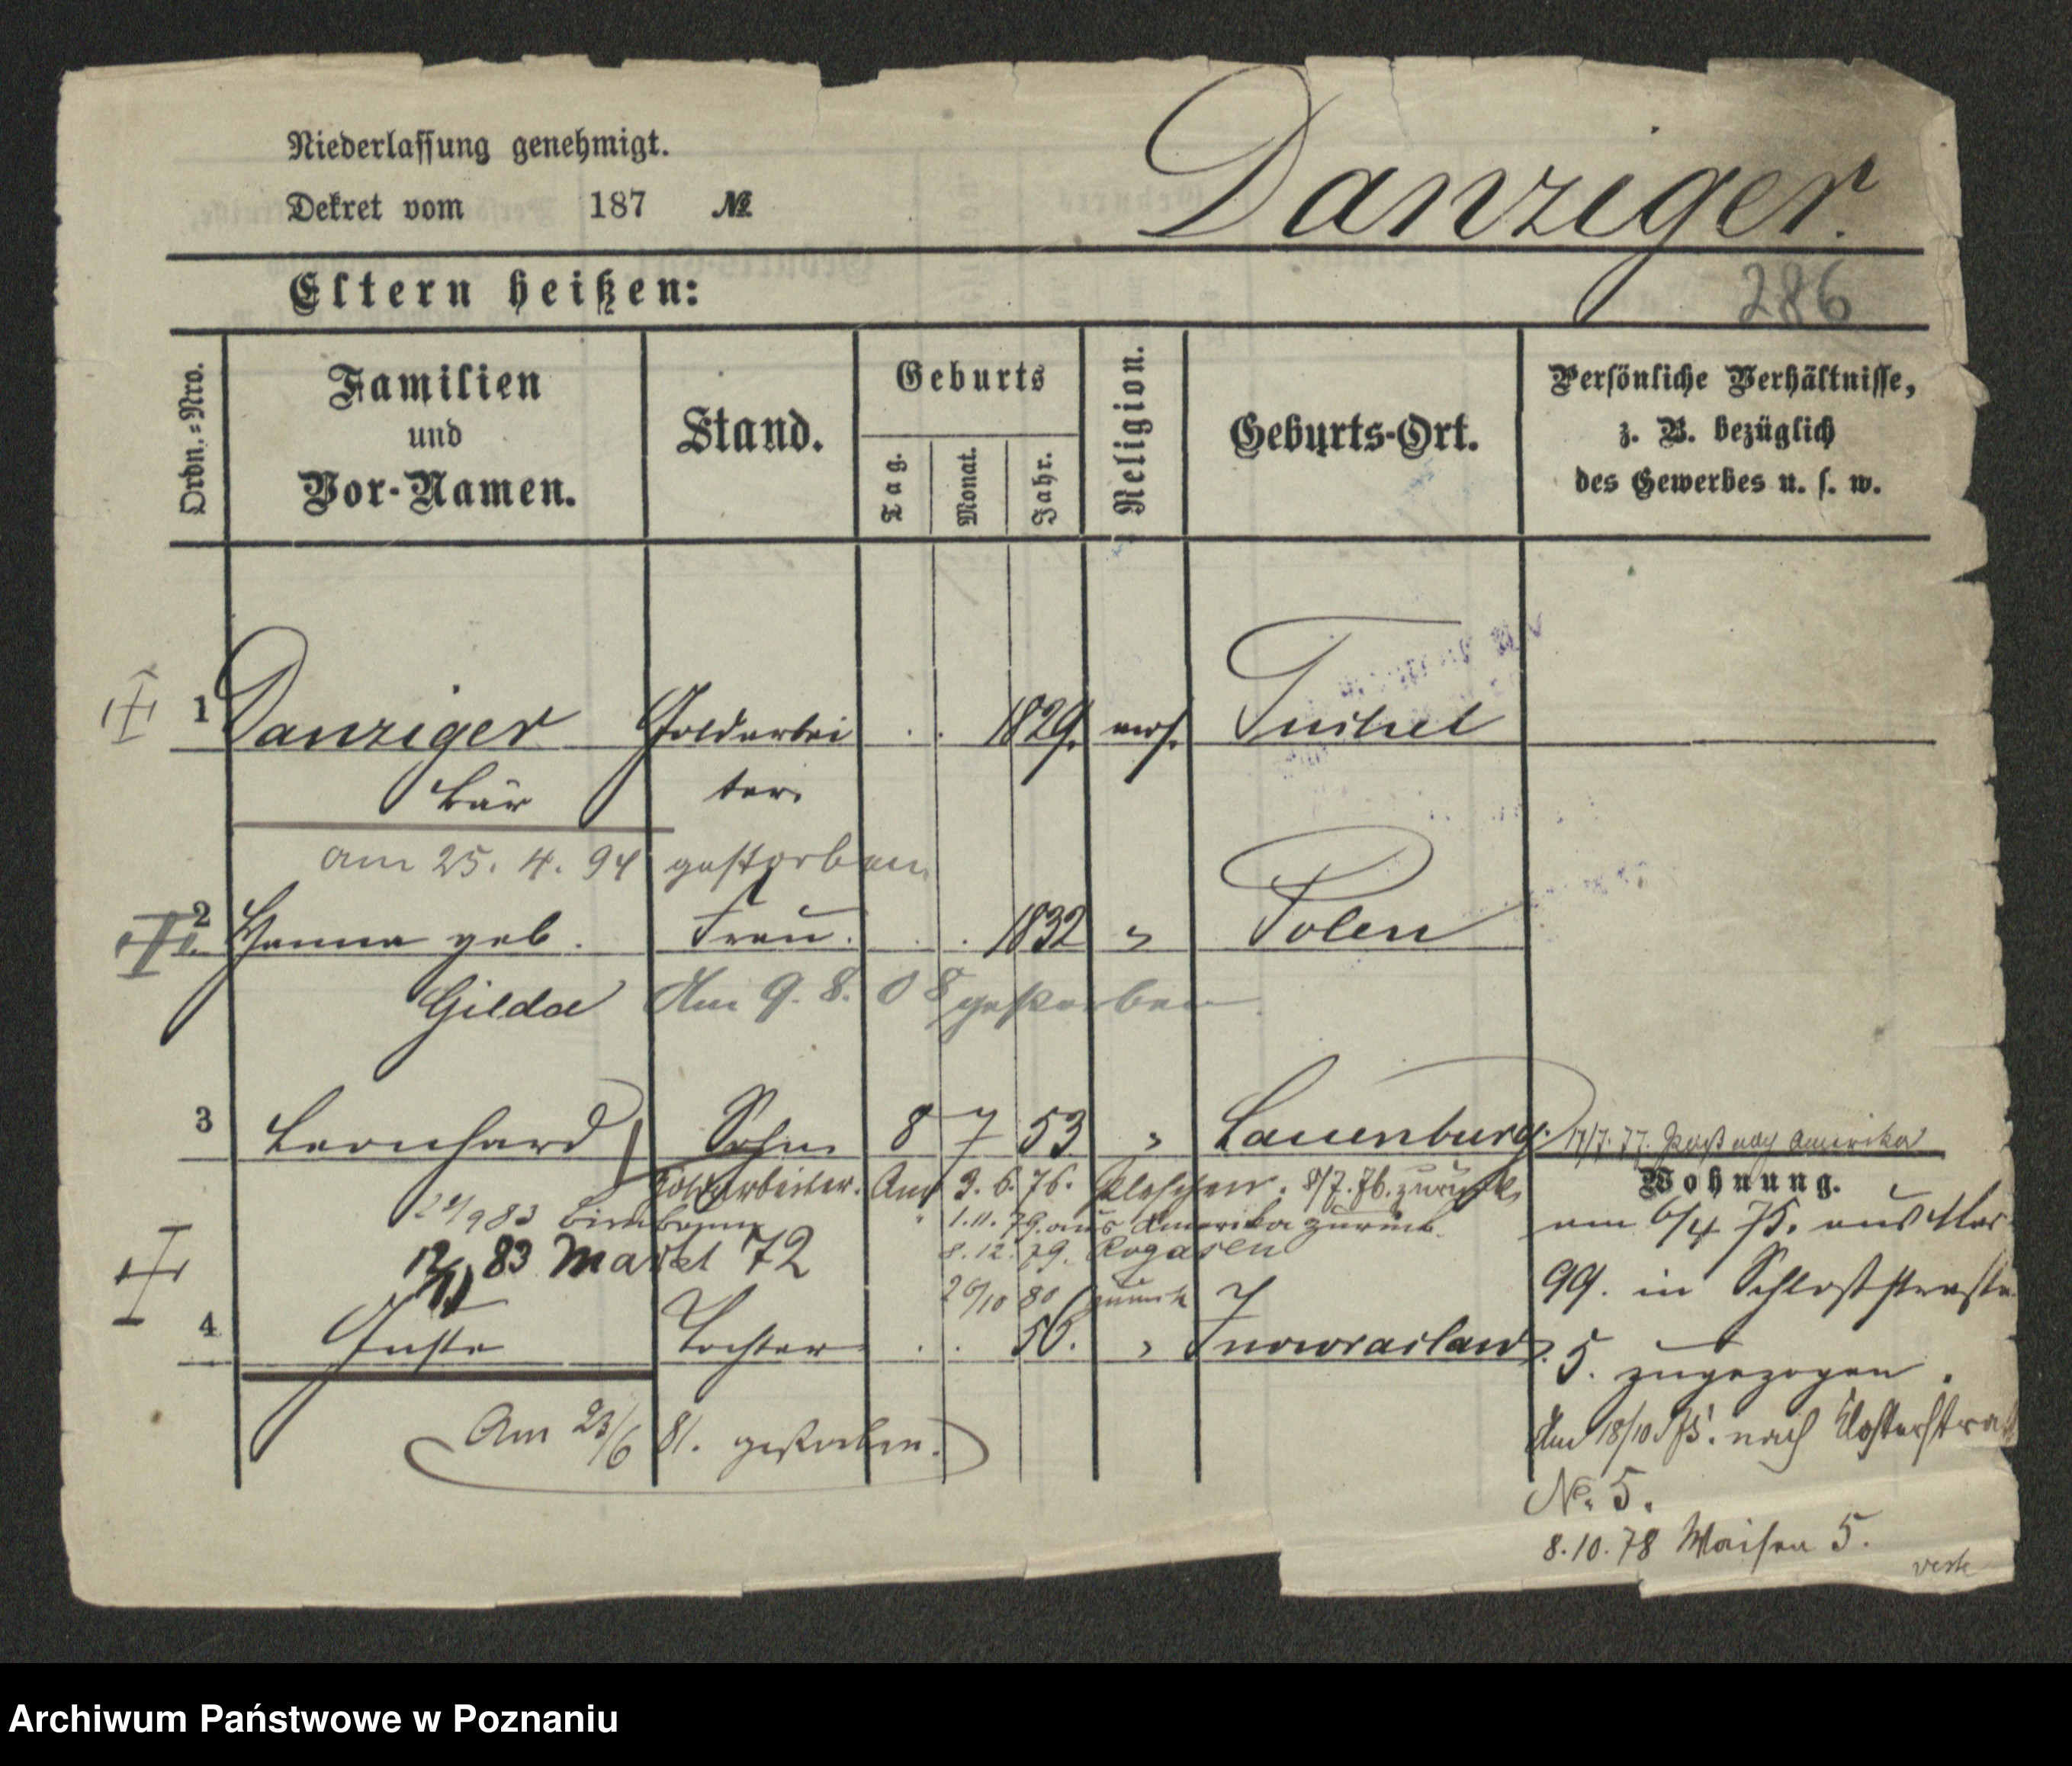 Niederlassung genehmigt.
Dekret vom 187 №
Danziger.
Eltern heißen:
286
Ordn.=Nro.
Familien
und
Vor-Namen.
Stand.
Geburts
Tag.
Monat.
Jahr.
Religion.
Geburts-Ort.
Persönliche Verhältnisse,
z. B. bezüglich
des Gewerbes u. s. w.
1 Danziger Goldarbei . . 1829. mos. Tuchel
Bär ter.
am 25. 4. 94 gestorben
2 Hanna geb. Frau. . . 1832 " Polen
Gilda Am 9. 8. 08 gestorben
3 Leonhard Sohn 8 7 53 " Lauenburg. 17/7. 77. Paß nach Amerika
Goldarbeiter. Am 3. 6. 76. Pleschen. 8/7. 76. zurück
Wohnung.
24/9 83 Birnbaum
" 1.11. 79. aus Amerika zurück.
am 6/4 75. aus
12/11 83 Markt 72
8. 12. 79. Rogasen
99. in Schloßstraße
26/10 80 zurück
4 Juste Tochter . . 56. " Inowraclaw.
5. zugezogen.
Am 23/6 81. gestorben.
Am 18/10 75. nach Klosterstra
No. 5.
8.10.78 Waisen 5.